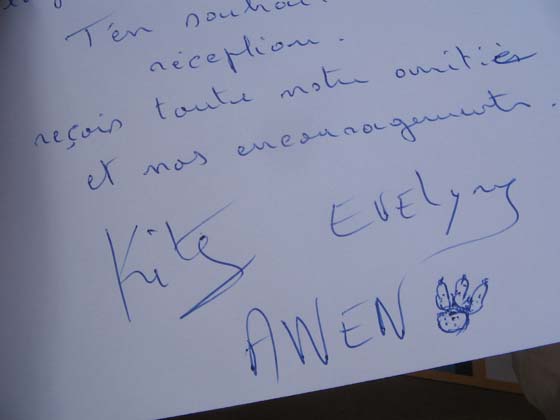 T'en souhai
réception.
reçois toute notre amitiés
et nos encouragements.
Evelyne
AWEN